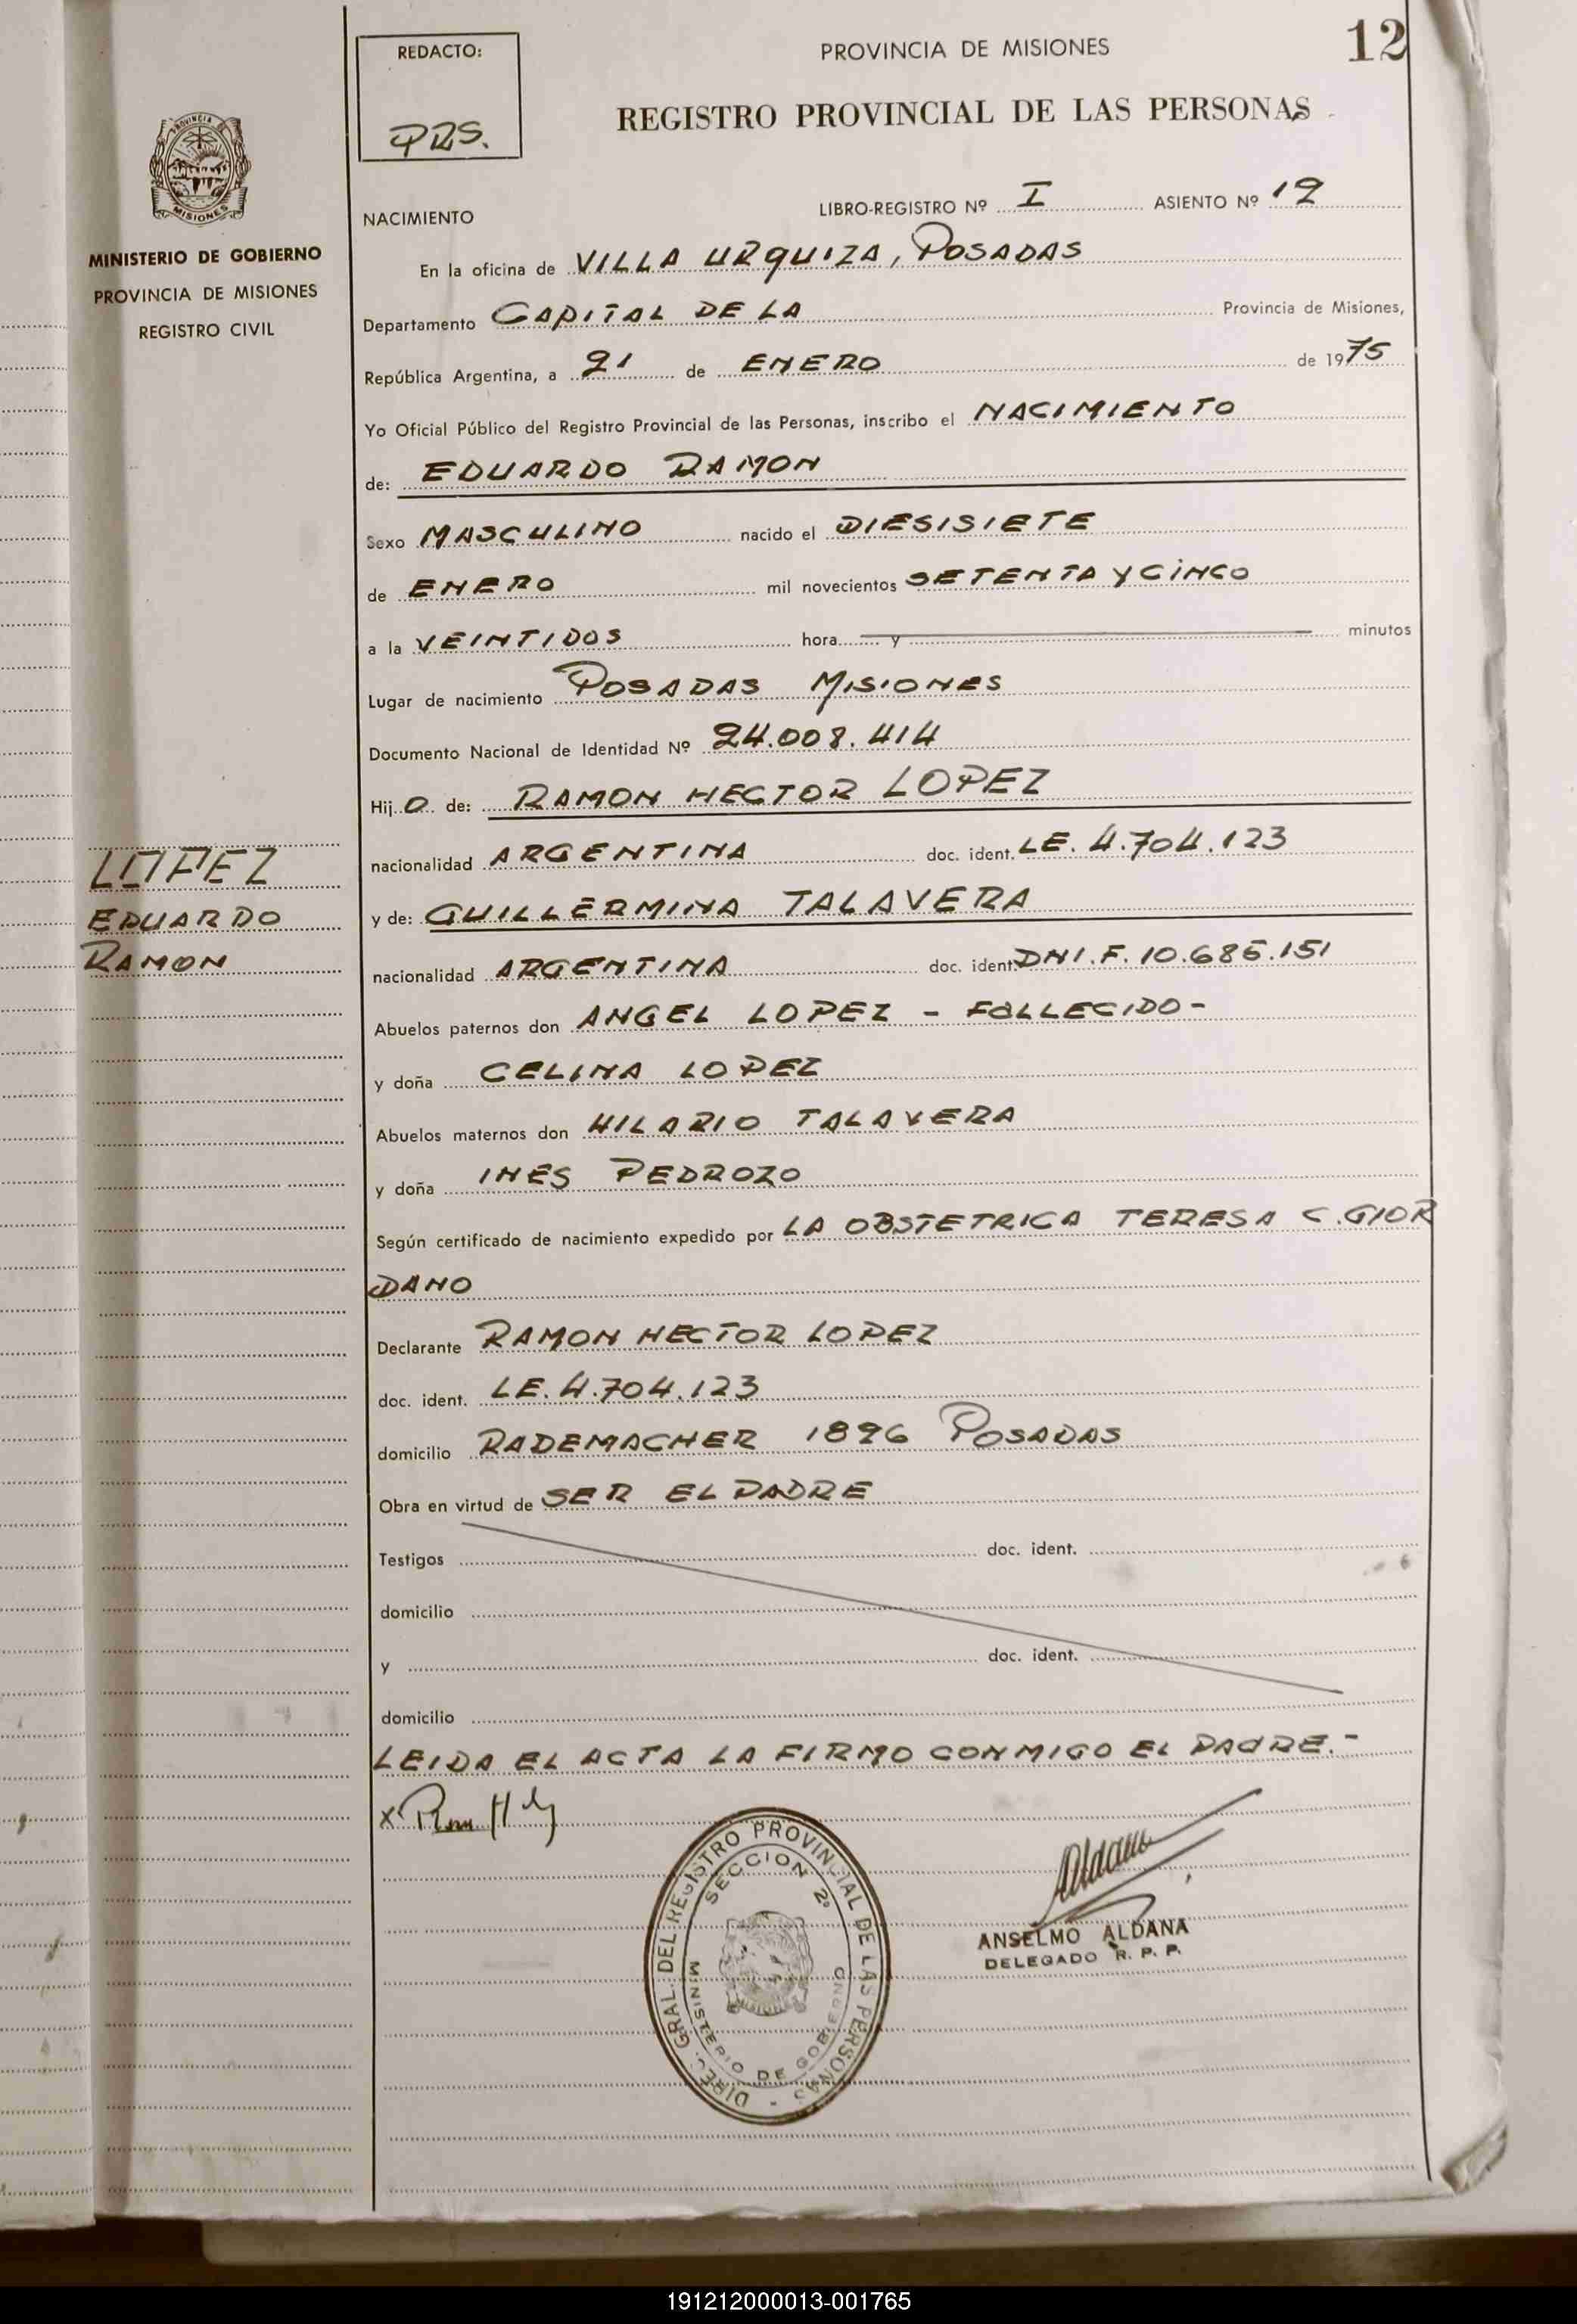 REDACTO:
PRS.
PROVINCIA DE MISIONES
12
REGISTRO PROVINCIAL DE LAS PERSONAS
MISIONES
MINISTERIO DE GOBIERNO
PROVINCIA DE MISIONES
REGISTRO CIVIL
LOPEZ
EDUARDO
RAMON
NACIMIENTO LIBRO-REGISTRO Nº I ASIENTO Nº 12
En la oficina de VILLA URQUIZA, POSADAS
Departamento CAPITAL DE LA Provincia de Misiones,
República Argentina, a 21 de ENERO de 1975
Yo Oficial Público del Registro Provincial de las Personas, inscribo el NACIMIENTO
de: EDUARDO RAMON
Sexo MASCULINO nacido el DIESISIETE
de ENERO mil novecientos SETENTA Y CINCO
a la VEINTIDOS hora y minutos
Lugar de nacimiento POSADAS MISIONES
Documento Nacional de Identidad Nº 24.008.414
Hij O de: RAMON HECTOR LOPEZ
nacionalidad ARGENTINA doc. ident. LE. 4.704.123
y de: GUILLERMINA TALAVERA
nacionalidad ARGENTINA doc. ident. DNI.F. 10.685.151
Abuelos paternos don ANGEL LOPEZ - FALLECIDO -
y doña CELINA LOPEZ
Abuelos maternos don HILARIO TALAVERA
y doña INES PEDROZO
Según certificado de nacimiento expedido por LA OBSTETRICA TERESA C. GIOR
DANO
Declarante RAMON HECTOR LOPEZ
doc. ident. LE. 4.704.123
domicilio RADEMACHER 1896 POSADAS
Obra en virtud de SER EL PADRE
Testigos doc. ident.
domicilio
y doc. ident.
domicilio
LEIDA EL ACTA LA FIRMO CONMIGO EL PADRE.-
X
DIREC. GRAL. DEL REGISTRO PROVINCIAL DE LAS PERSONAS -
SECCION 2º
MINISTERIO DE GOBIERNO
MISIONES
Aldana
ANSELMO ALDANA
DELEGADO R. P. P.
191212000013-001765